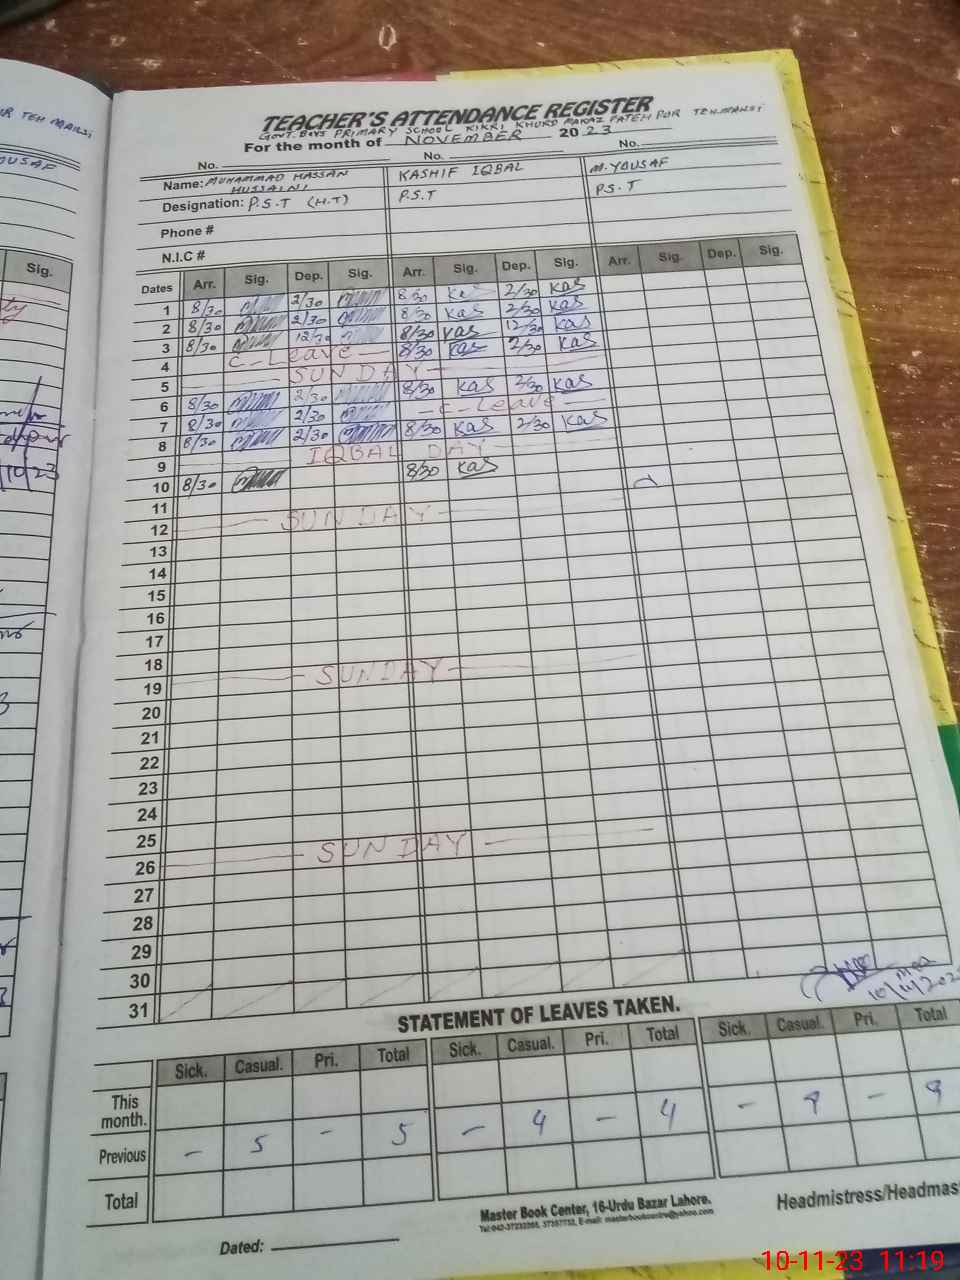 TEACHER'S ATTENDANCE REGISTER
GOVT. BOYS PRIMARY SCHOOL KIKRI KHURD MARAZ FATEH POR TEH.MAILSI
For the month of NOVEMBER 2023
No. No. No.
Name: MUHAMMAD HASSAN HUSSAINI KASHIF IQBAL M. YOUSAF
Designation: P.S.T (H.T) P.S.T P.S.T
Phone #
N.I.C #
Dates Arr. Sig. Dep. Sig. Arr. Sig. Dep. Sig. Arr. Sig. Dep. Sig.
1 8/30 2/30 8/30 Kas 2/30 Kas
2 8/30 2/30 8/30 Kas 2/30 Kas
3 8/30 12/30 8/30 Kas 12/30 Kas
4 C-Leave 8/30 Kas 2/30 Kas
5 SUNDAY
6 8/30 2/30 8/30 Kas 2/30 Kas
7 8/30 2/30 -C-Leave
8 8/30 2/30 8/30 Kas 2/30 Kas
9 IQBAL DAY
10 8/30 8/30 Kas
11
12 SUNDAY
13
14
15
16
17
18
19 SUNDAY
20
21
22
23
24
25
26 SUNDAY
27
28
29
30
31
10/11/202
STATEMENT OF LEAVES TAKEN.
Sick. Casual. Pri. Total Sick. Casual. Pri. Total Sick. Casual. Pri. Total
This month.
Previous - 5 - 5 - 4 - 4 - 9 - 9
Total
Master Book Center, 16-Urdu Bazar Lahore.
Headmistress/Headmas
Dated:
10-11-23 11:19
Sig.